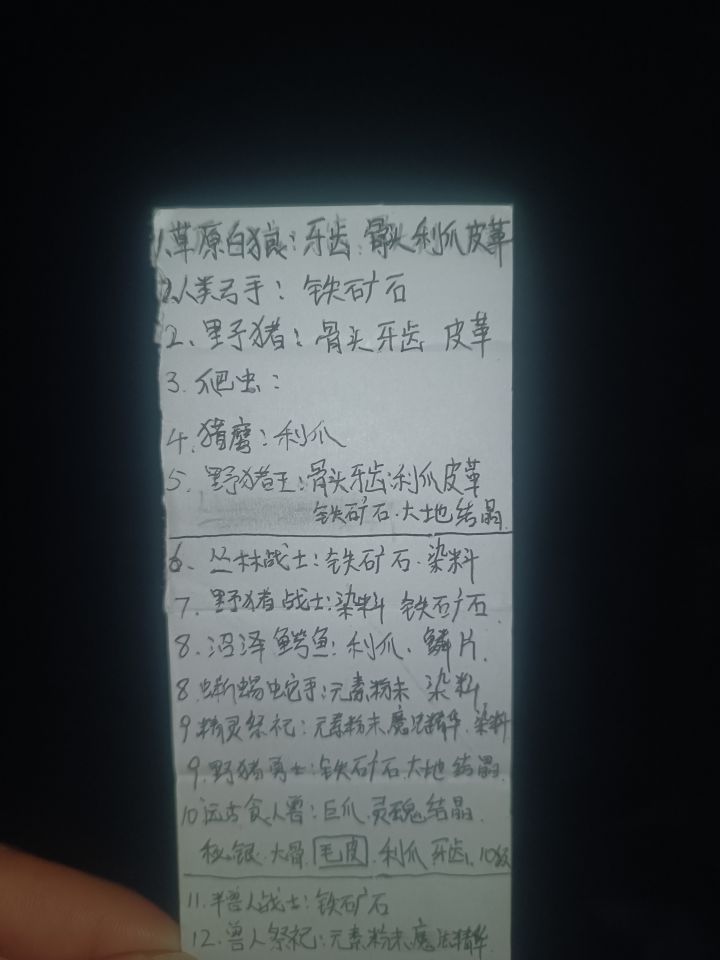 1.草原白狼:牙齿 骨头利爪皮革
2.人类弓手:铁矿石
2、野猪:骨头牙齿 皮革
3.爬虫:
4.猪魔:利爪
5、野猪王:骨头牙齿.利爪皮革
铁矿石.大地结晶.
6、丛林战士:铁矿石.染料
7、野猪战士:染料 铁矿石.
8.沼泽鳄鱼:利爪、鳞片.
8.蜥蜴蛇手:元素粉末 染料
9精灵祭祀:元素粉末魔法精华.染料
9.野猪勇士:铁矿石.大地 结晶.
10远古食人兽:巨爪.灵魂结晶.
秘银.大骨.毛皮.利爪牙齿.10级
11.半兽人战士:铁矿石
12.兽人祭祀:元素粉末魔法精华